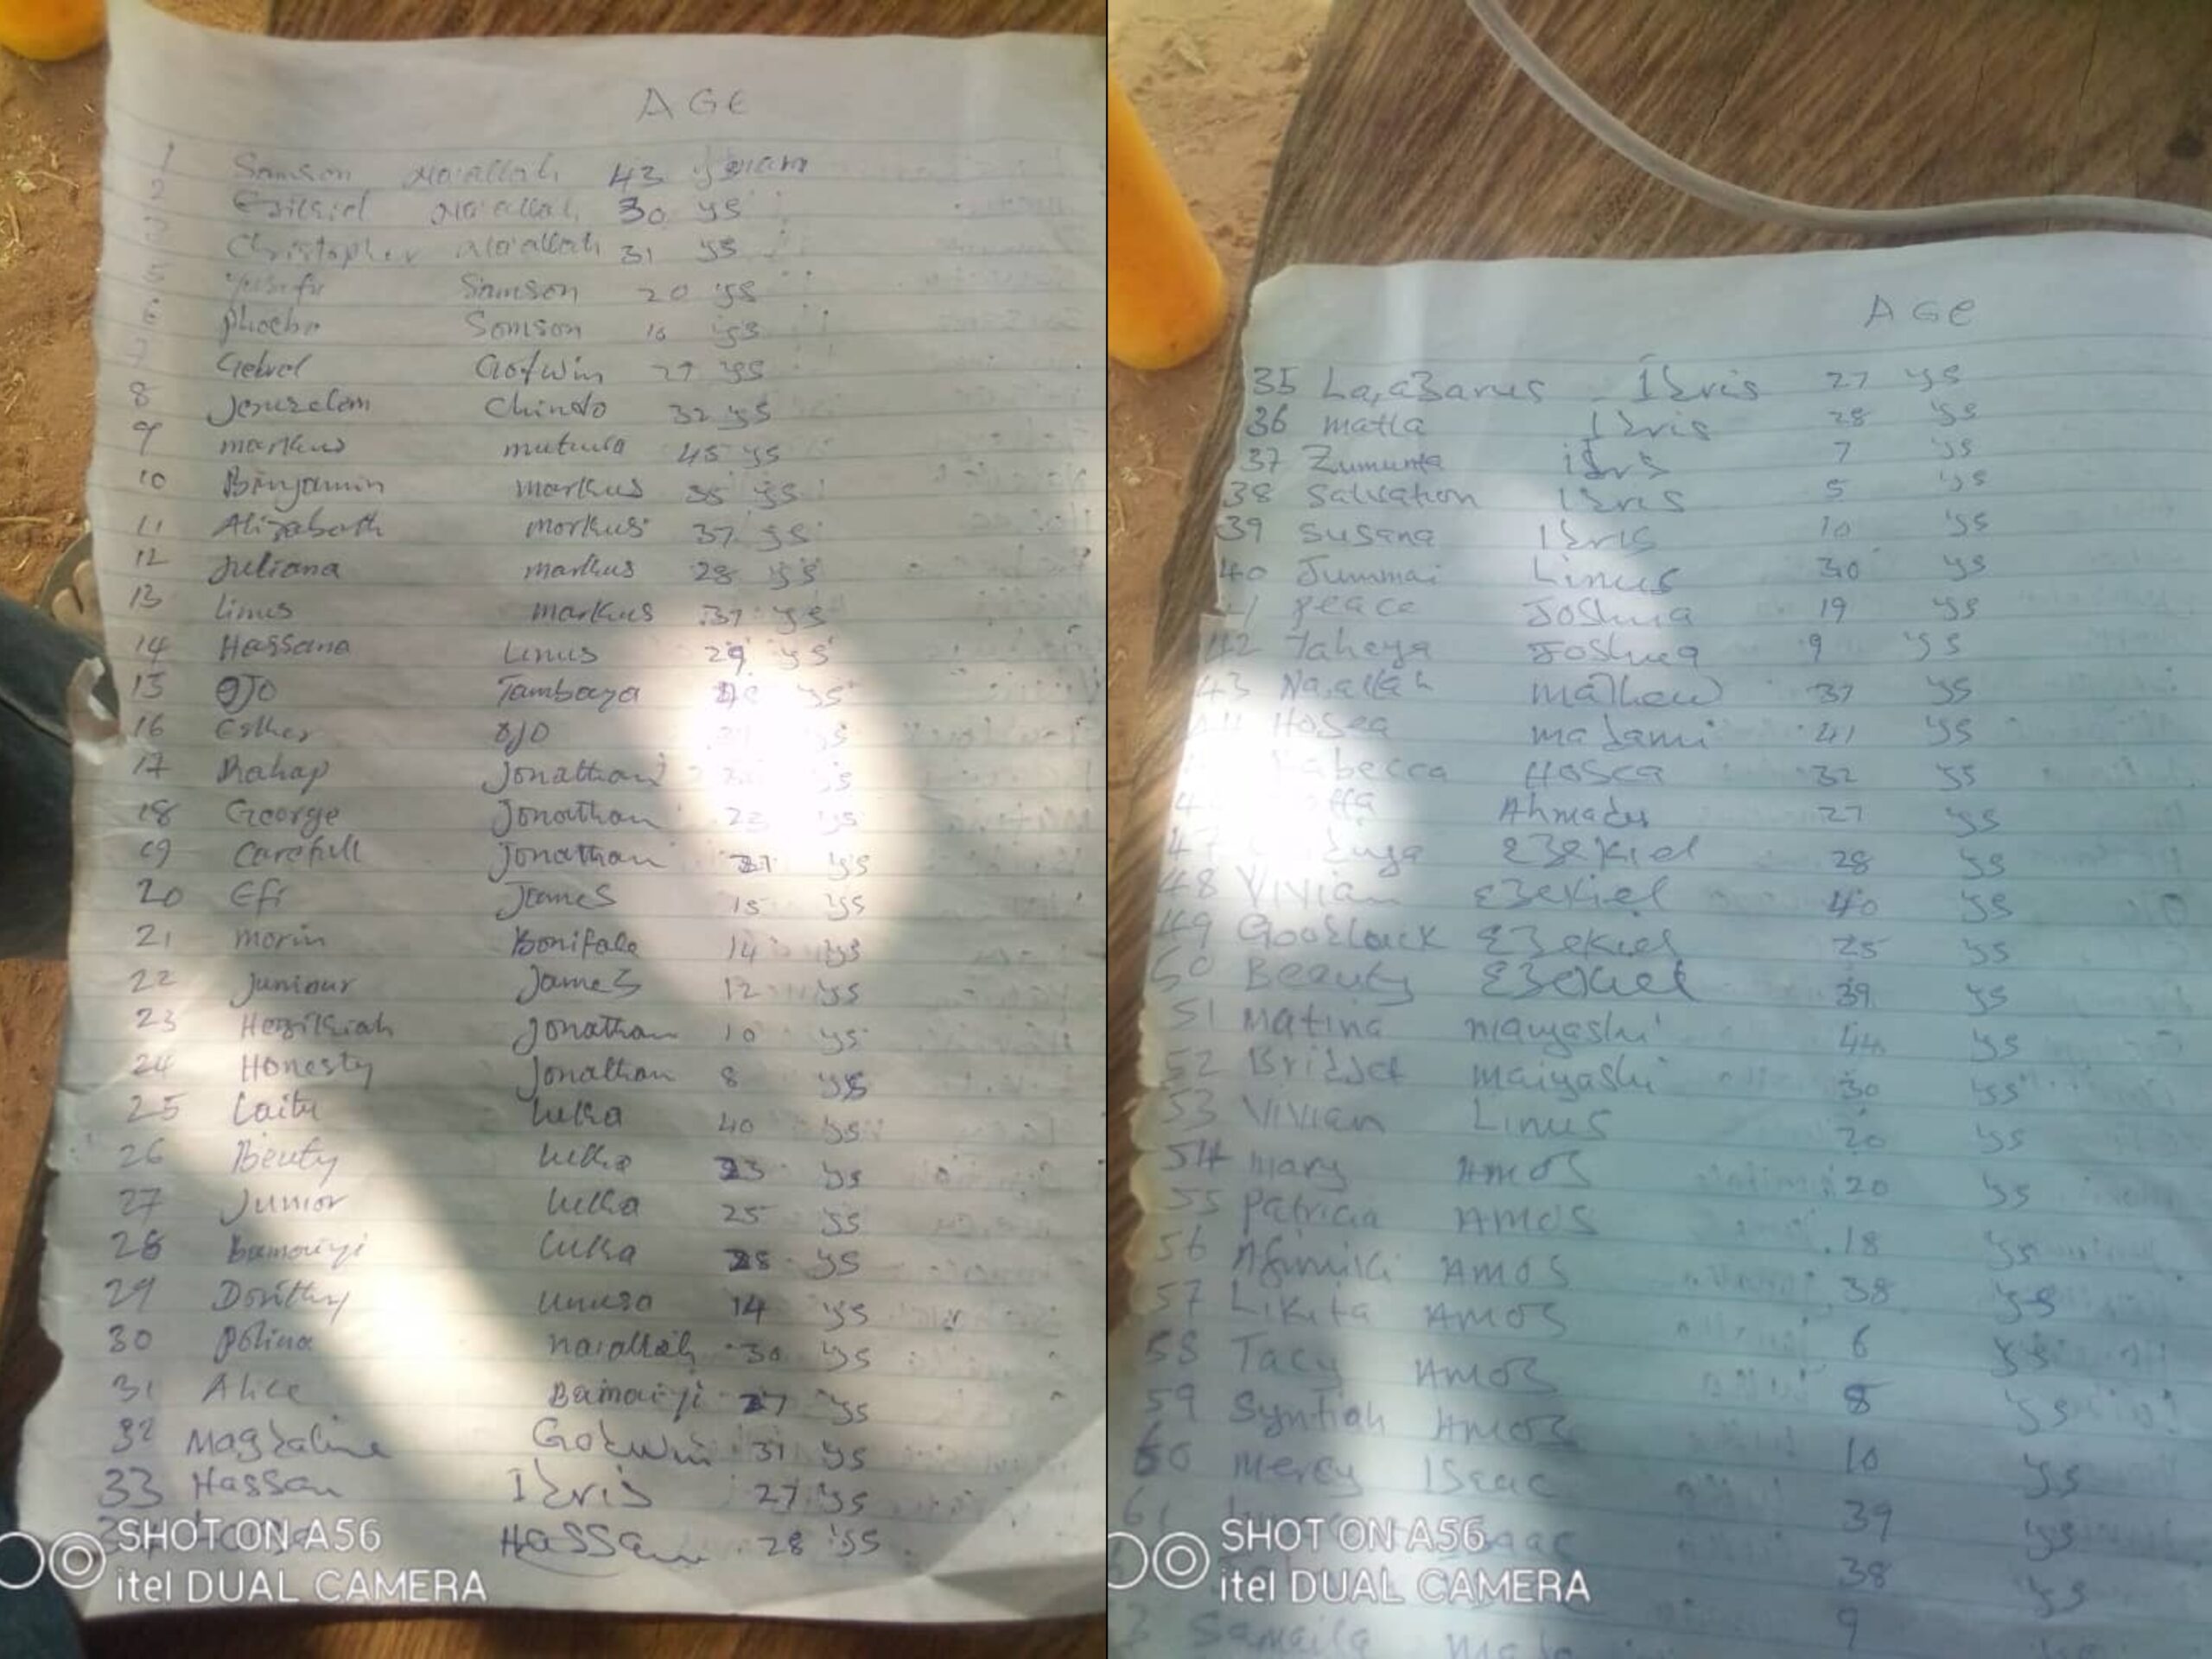 AGE
1 Samson Na'allah 43 years
2 Ezikiel Na'allah 30 ys
3 Christopher Na'allah 31 ys
5 Yusufu Samson 20 ys
6 Phoebe Samson 18 ys
7 Gebrel Gofwin 27 ys
8 Jeruzelem Chindo 32 ys
9 markus mutuwa 45 ys
10 Binjamin markus 35 ys
11 Alizabath markus 37 ys
12 Juliana markus 28 ys
13 Linus markus 37 ys
14 Hassana Linus 29 ys
15 OJO Tambaya ys
16 Esther OJO ys
17 Rahap Jonathan ys
18 George Jonathan 23 ys
19 Carefull Jonathan 21 ys
20 Efi James 15 ys
21 morin Boniface 14 ys
22 Juniour James 12 ys
23 Hezikiah Jonathan 10 ys
24 Honesty Jonathan 8 ys
25 Laitu Luka 40 ys
26 Beuty Luka 23 ys
27 Junior Luka 25 ys
28 Bamaiyi Luka 28 ys
29 Dorithy 14 ys
30 Polina na'allah 30 ys
31 Alice Bamaiyi 27 ys
32 Magdaline Godwin 31 ys
33 Hassan Idris 27 ys
Hassan 28 ys
SHOT ON A56
itel DUAL CAMERA
AGE
35 La,azarus Idris 27 ys
36 matta Idris 28 ys
37 Zumunta idris 7 ys
38 Salvation Idris 5 ys
39 Susana Idris 10 ys
40 Jummai Linus 30 ys
peace Joshua 19 ys
42 Taheya Joshua 9 ys
43 Na,allah mathew 37 ys
Hosea madami 41 ys
Rabecca Hosea 32 ys
Ahmadu 27 ys
47 Ezekiel 28 ys
48 Vivian Ezekiel 40 ys
49 Goodluck Ezekiel 25 ys
50 Beauty Ezekiel 39 ys
51 Matina maiyashi 44 ys
52 Bridget maiyashi 30 ys
53 Vivian Linus 20 ys
54 mary AMOS 20 ys
55 Patricia AMOS 18 ys
56 Afiniki AMOS 38 ys
57 Likita AMOS 6 ys
58 Tacy AMOS 8 ys
59 Syntiah AMOS 10 ys
60 Mercy Isaac 39 ys
61 38 ys
9
Samaila
SHOT ON A56
itel DUAL CAMERA